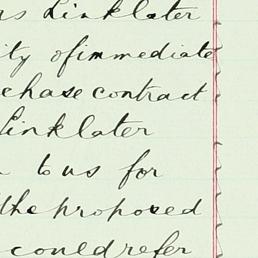 rs Linklater
ity of immediate
chase contract
Linklater
to us for
the proposed
could refer